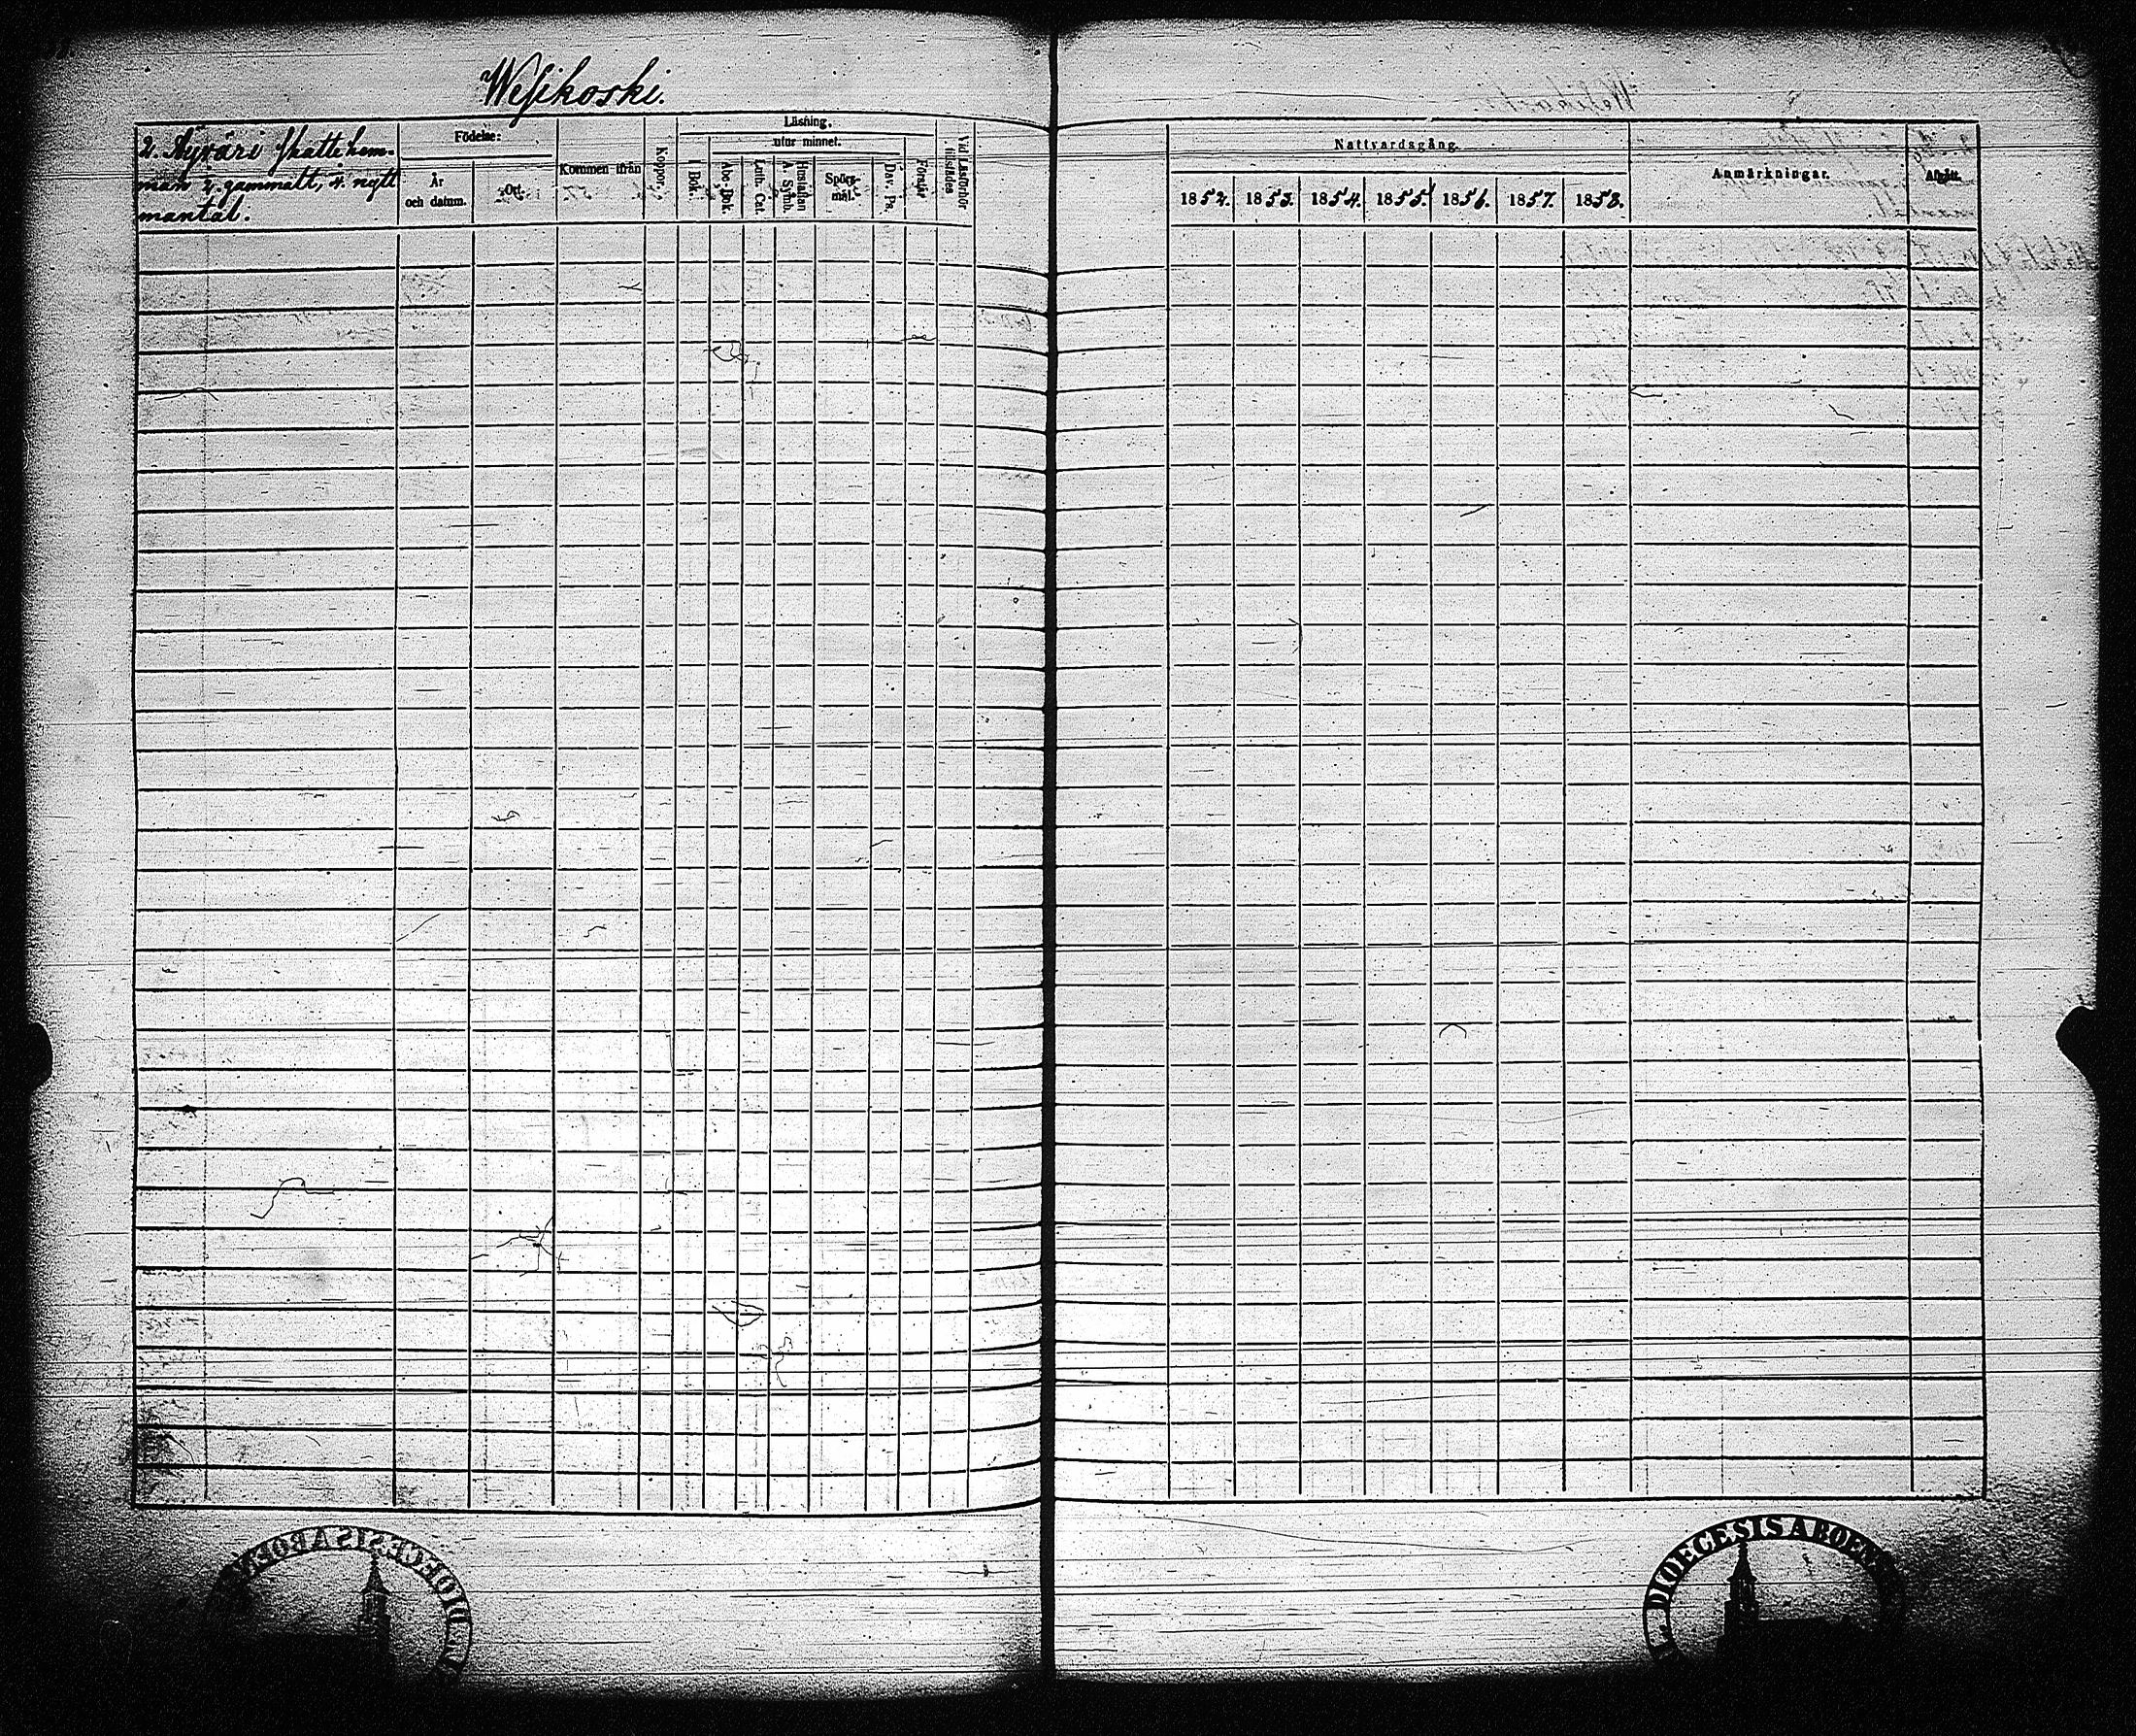 Wesikoski.
2. Äyräri skattehem-
man 2. gammalt, 4. nytt
mantal.
Födelse:
År
och datum.
Ort.
Kommen ifrån
Koppor.
Läsning.
utur minnet.
I Bok.
Abc-Bok.
Luth. Cat.
Hustaflan
A. Symb.
Spörs-
mål.
Dav. Ps.
Förstår
Vid Läsförhör
tillstädes
Nattvardsgång.
1852. 1853. 1854. 1855. 1856. 1857. 1858.
Anmärkningar.
Afgått.
DIOECESIS ABOENSIS